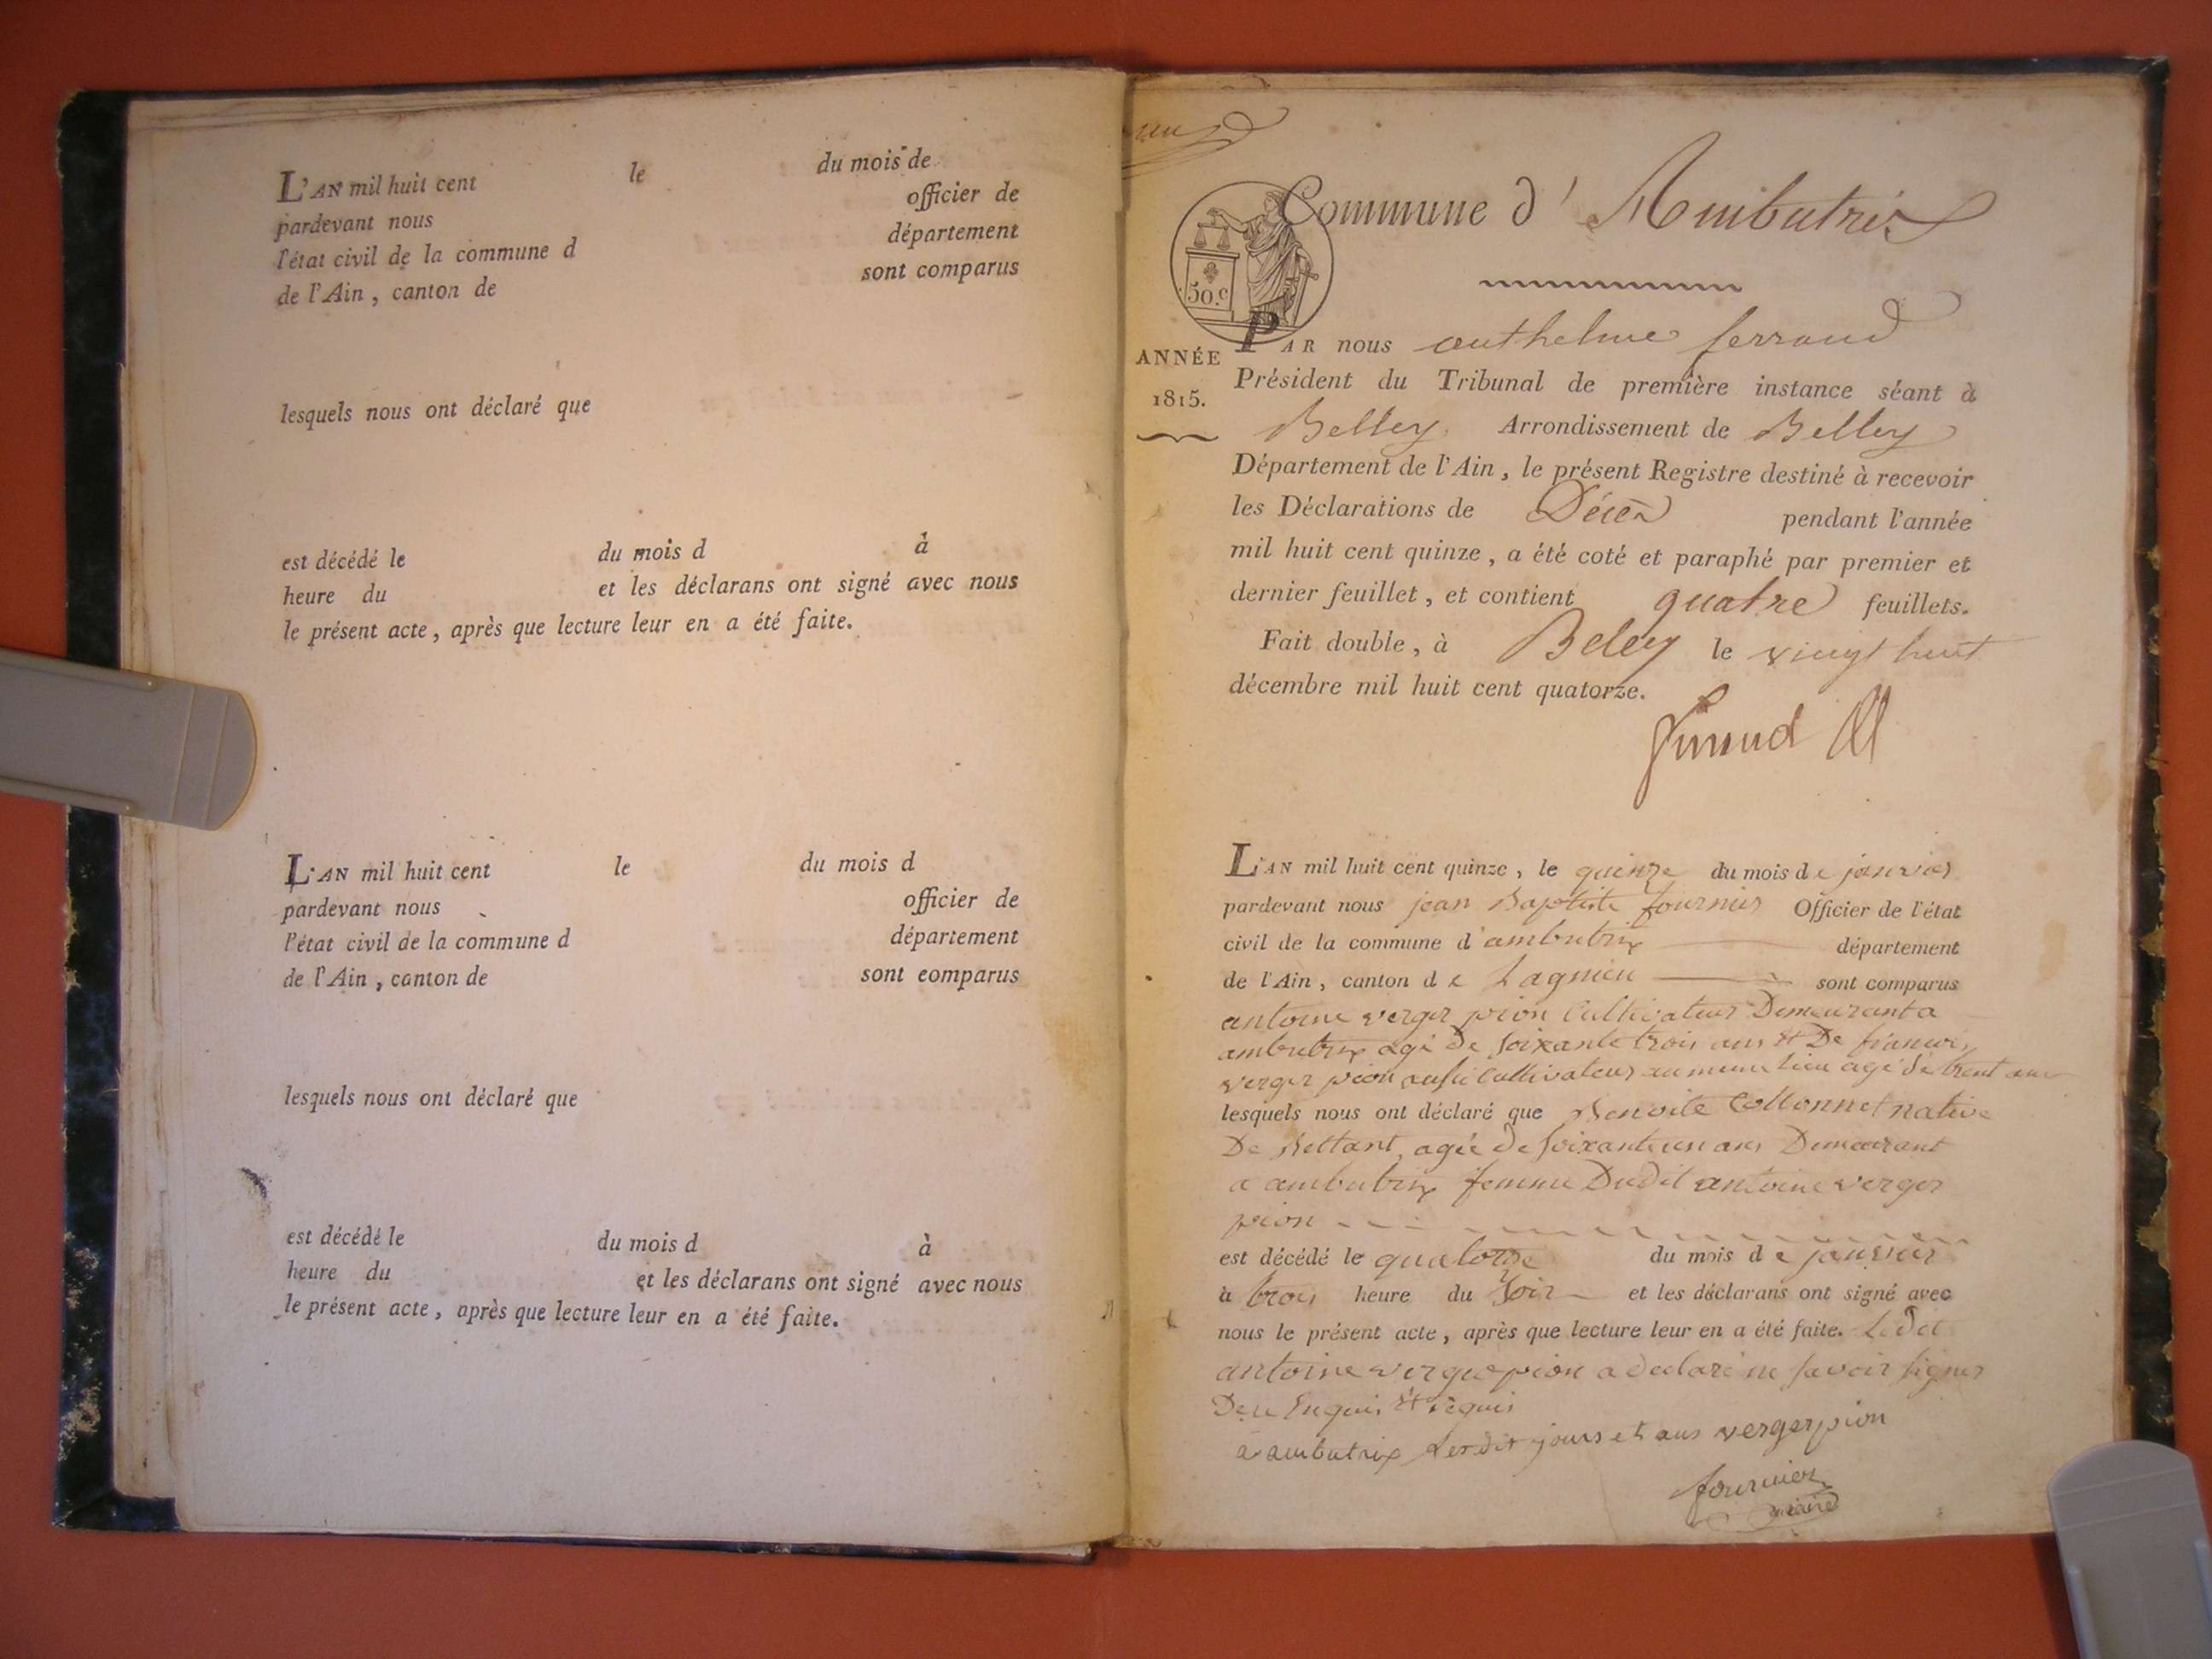 L'AN mil huit cent le du mois de
pardevant nous officier de
l'état civil de la commune d département
de l'Ain, canton de sont comparus
lesquels nous ont déclaré que
est décédé le du mois d à
heure du et les déclarans ont signé avec nous
le présent acte, après que lecture leur en a été faite.
L'AN mil huit cent le du mois d
pardevant nous officier de
l'état civil de la commune d département
de l'Ain, canton de sont comparus
lesquels nous ont déclaré que
est décédé le du mois d à
heure du et les déclarans ont signé avec nous
le présent acte, après que lecture leur en a été faite.
Commune d'Ambutrix
50.c
ANNÉE
1815.
PAR nous anthelme ferrand
Président du Tribunal de première instance séant à
Belley Arrondissement de Belley
Département de l'Ain, le présent Registre destiné à recevoir
les Déclarations de Décès pendant l'année
mil huit cent quinze, a été coté et paraphé par premier et
dernier feuillet, et contient quatre feuillets.
Fait double, à Beley le vingt huit
décembre mil huit cent quatorze.
L'AN mil huit cent quinze, le quinze du mois de janvier
pardevant nous jean Baptiste fournier Officier de l'état
civil de la commune d'ambutrix département
de l'Ain, canton de Lagnieu sont comparus
antoine verger pion Cultivateur Demeurant a
ambutrix agé de soixante trois ans et De francois
verger pion aussi Cultivateur au meme lieu agé de trent ans
lesquels nous ont déclaré que Benoite Collonnet native
De Bettant, agée de soixante un ans Demeurant
a ambutrix femme Dudit antoine verger
pion
est décédé le quatorze du mois de janvier
à trois heure du soir et les déclarans ont signé avec
nous le présent acte, après que lecture leur en a été faite. Ledit
antoine verger pion a declaré ne savoir signer
De ce Enquis et requis
a ambutrix Les dit jours et ans vergerpion
fournier
maire